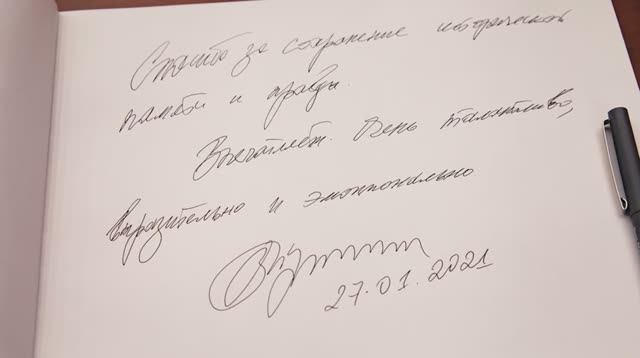 Спасибо за сохранение исторической
памяти и правды.
Впечатляет. Очень талантливо,
выразительно и эмоционально
27.01.2021